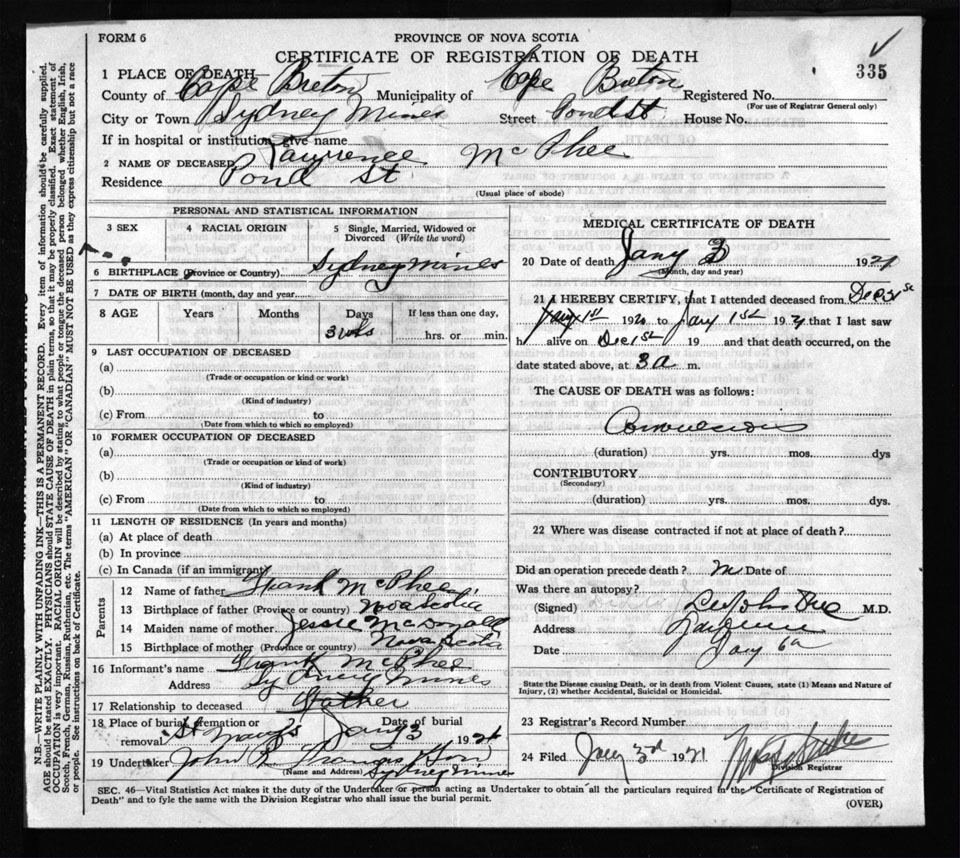 FORM 6
PROVINCE OF NOVA SCOTIA
CERTIFICATE OF REGISTRATION OF DEATH
335
1 PLACE OF DEATH—
County of Cape Breton Municipality of Cape Breton Registered No.
(For use of Registrar General only)
City or Town Sydney Mines Street Pond St House No.
If in hospital or institution, give name
2 NAME OF DECEASED Lawrence McPhee
Residence Pond St
(Usual place of abode)
PERSONAL AND STATISTICAL INFORMATION
3 SEX
4 RACIAL ORIGIN
5 Single, Married, Widowed or Divorced (Write the word)
6 BIRTHPLACE (Province or Country) Sydney Mines
7 DATE OF BIRTH (month, day and year)
8 AGE Years Months Days If less than one day,
3 wks hrs. or min.
9 LAST OCCUPATION OF DECEASED
(a)
(Trade or occupation or kind or work)
(b)
(Kind of industry)
(c) From to
(Date from which to which so employed)
10 FORMER OCCUPATION OF DECEASED
(a)
(Trade or occupation or kind of work)
(b)
(Kind of industry)
(c) From to
(Date from which to which so employed)
11 LENGTH OF RESIDENCE (In years and months)
(a) At place of death
(b) In province
(c) In Canada (if an immigrant)
Parents
12 Name of father Frank McPhee
13 Birthplace of father (Province or country) Nova Scotia
14 Maiden name of mother Jessie McDonald
15 Birthplace of mother (Province or country) Nova Scotia
16 Informant's name Frank McPhee
Address Sydney Mines
17 Relationship to deceased Father
18 Place of burial, cremation or removal St Mary's Date of burial Jany 3 1921
19 Undertaker John
(Name and Address) Sydney Mines
MEDICAL CERTIFICATE OF DEATH
20 Date of death Jany 3 1921
(Month, day and year)
21 I HEREBY CERTIFY, that I attended deceased from Dec
1920 to Jany 1st 1921 that I last saw
h alive on Dec 1st 19 and that death occurred, on the
date stated above, at 3 a m.
The CAUSE OF DEATH was as follows:
Convulsions
(duration) yrs. mos. dys
CONTRIBUTORY
(Secondary)
(duration) yrs. mos. dys.
22 Where was disease contracted if not at place of death?
Did an operation precede death? Date of
Was there an autopsy?
(Signed) M.D.
Address
Date Jany 6
State the Disease causing Death, or in death from Violent Causes, state (1) Means and Nature of
Injury, (2) whether Accidental, Suicidal or Homicidal.
23 Registrar's Record Number
24 Filed Jany 3rd 1921
Division Registrar
SEC. 46—Vital Statistics Act makes it the duty of the Undertaker or person acting as Undertaker to obtain all the particulars required in the "Certificate of Registration of
Death" and to fyle the same with the Division Registrar who shall issue the burial permit.
(OVER)
N.B.—WRITE PLAINLY WITH UNFADING INK—THIS IS A PERMANENT RECORD. Every item of information should be carefully supplied.
AGE should be stated EXACTLY. PHYSICIANS should STATE CAUSE OF DEATH in plain terms, so that it may be properly classified. Exact statement of
OCCUPATION is very important. RACIAL ORIGIN will be described by stating to what people or tongue the deceased person belonged whether English, Irish,
Scotch, French, German, Russian, Ruthenian, etc. The terms "AMERICAN" OR "CANADIAN" MUST NOT BE USED as they express citizenship but not a race
or people. See instructions on back of Certificate.